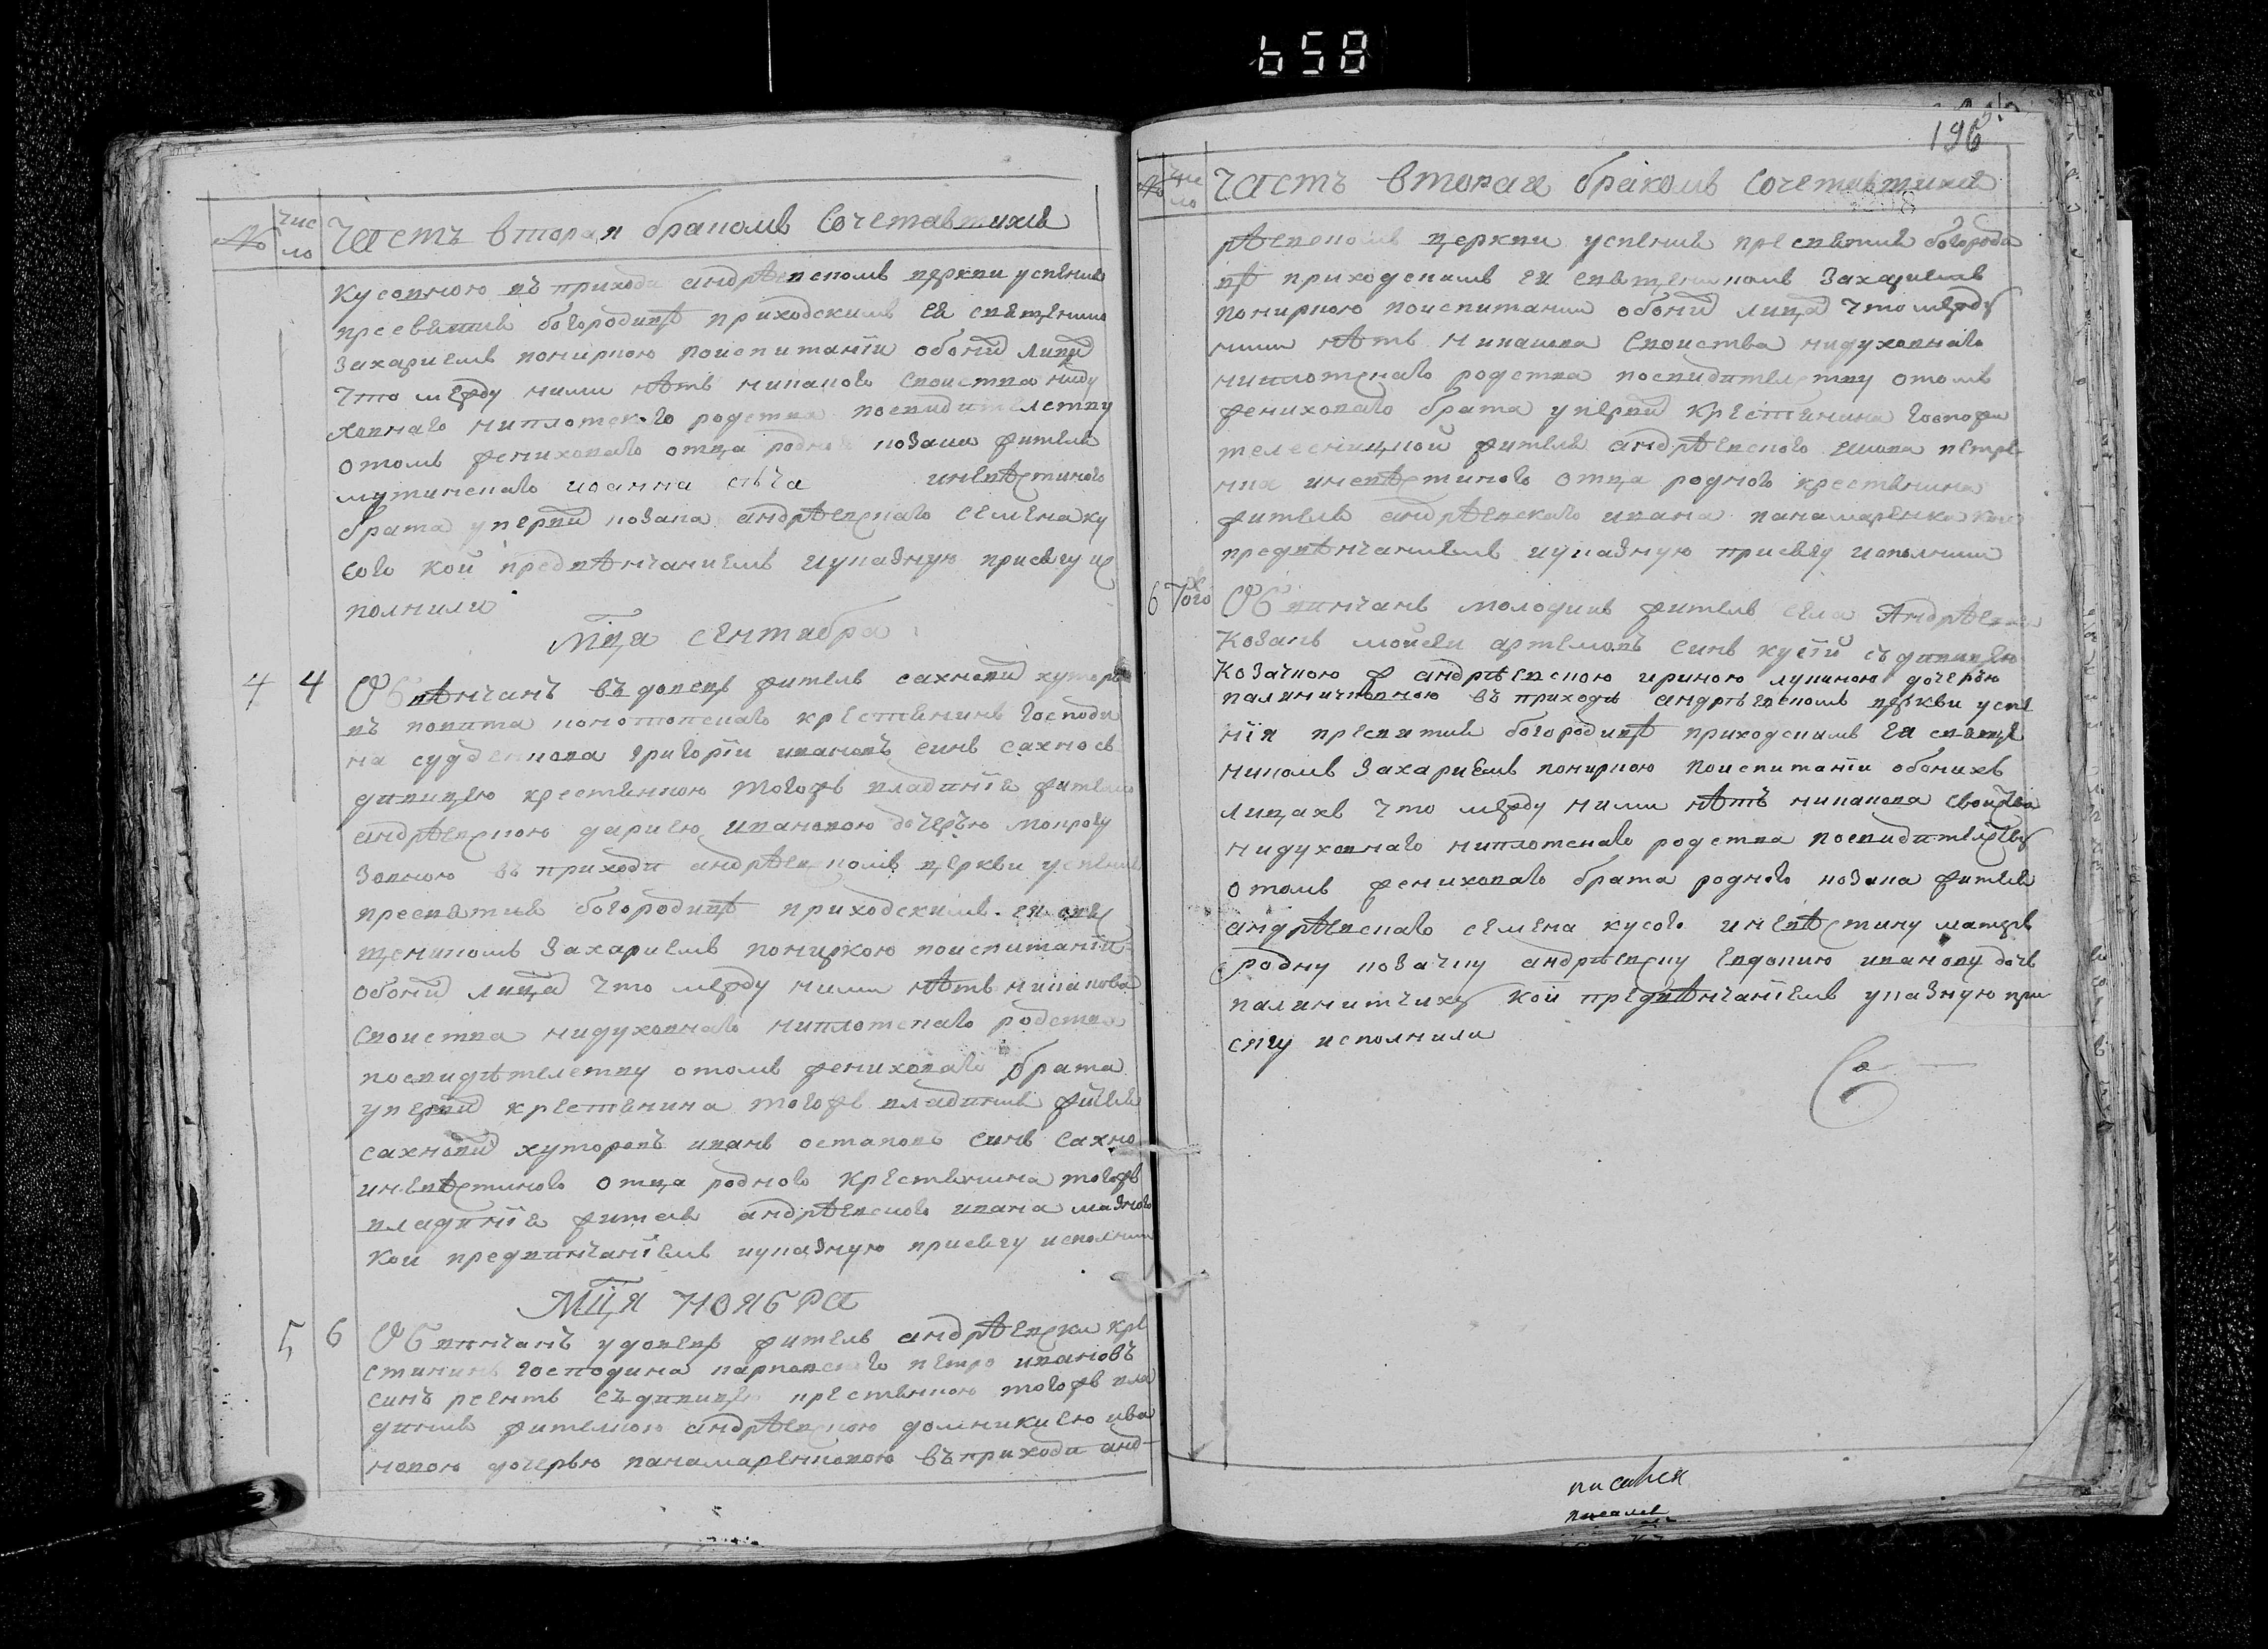 658
№ чис
ло
Часть вторая бракомъ сочетавшихся
кусовною въ приходи андрѣевскомъ церкви успения
пресвятия богородицѣ приходскимъ ея священико
Захариемъ помирною повиспитании обоий лицй
что между ними нѣтъ никакого своиства ниду
ховнаго ниплотского родства посвидителству
отомъ жениховаго отца родного козака жителя
мутинскаго иоанна сѣча иневѣстиного
брата уперви козака андрѣевскаго семена ку
сого кои предвѣнчаниемъ иуказную присягу ис
полнили
Мца сентября
4 4 Обвѣнчанъ въдовецъ житель сахновй хуторо
въ повита конотопскаго крестянинъ господи
на судденкова григории ивановъ синъ сахно съ
дивицею крестянкою тогожъ владиния жителко
андрѣевскою дариею ивановою дочерью мокрогу
зовною въ приходи андрѣевскомъ церкви успения
пресвятия богородицѣ приходскимъ ея свя
щеникомъ Захариемъ помиркою повиспитании
обоий лицй что между ними нѣтъ никакова
своиства нидуховнаго ниплотскаго родства
посвидѣтелству отомъ жениховаго брата
уперви крестянина тогожъ владиния жителя
сахновй хуторовъ иванъ остаповъ синъ сахно
иневѣстиного отца родного крестянина тогожъ
владиния жителя андрѣевского ивана мазного
кои предвинчаниемъ иуказную присягу исполнили
Мця Ноября
5 6 Обвинчанъ удовецъ житель андрѣевски кре
стининъ господина карповского петро ивановъ
синъ реентъ съдивицею крестянкою тогожъ вла
диния жителкою андрѣевскою домникиею ива
новою дочерью панамаренковою въ приходи анд-
196
№ чис
ло
Часть вторая бракомъ сочетавшихся
рѣевскомъ церкви успения пресвятия богороди
цѣ приходскимъ ея священикомъ Захариемъ
помирною повиспитании обоий лицй что между
ними нѣтъ никакова своиства нидуховнаго
ниплотскаго родства посвидителству отомъ
жениховаго брата уперви крестянина госпожи
жителя андрѣевского
иневѣстиного отца родного крестянина
жителя андрѣевскаго ивана панамаренка кои
предвѣнчаниемъ иуказную присягу исполнили
6 Тогоже Обвинчанъ молодикъ житель села Андрѣевки
Козакъ моисеи артемовъ синъ кусий съ дивицею
Козачкою ж андрѣевскою ириною лукиною дочерью
палиничковною въ приходѣ андрѣевскомъ церкви успе
ния пресвятия богородицѣ приходскимъ ея свяще
никомъ Захариемъ помирною повиспитании обоихъ
лицахъ что между ними нѣтъ никакова своиства
нидуховнаго ниплотскаго родства посвидителству
отомъ жениховаго брата родного козака жителя
андрѣевскаго семена кусого иневѣстину матеръ
родну козачку андрѣевску евдокию иванову дочъ
палинитчиху кои предвѣнчаниемъ указную при
сягу исполнили